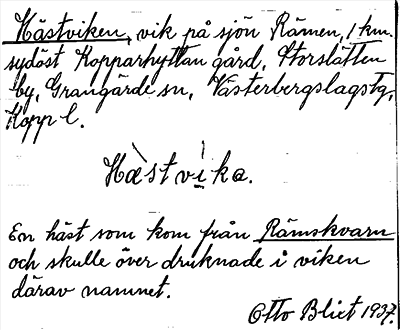 Hästviken, vik på sjön Rämen, 1 km.
sydöst Kopparhyttan gård, Storslätten
by, Grangärde sn, Västerbergslags tg,
Kopp l.
Hæ̀stvika.
En häst som kom från Rämskvarn
och skulle över druknade i viken
därav namnet.
Otto Blixt 1937.